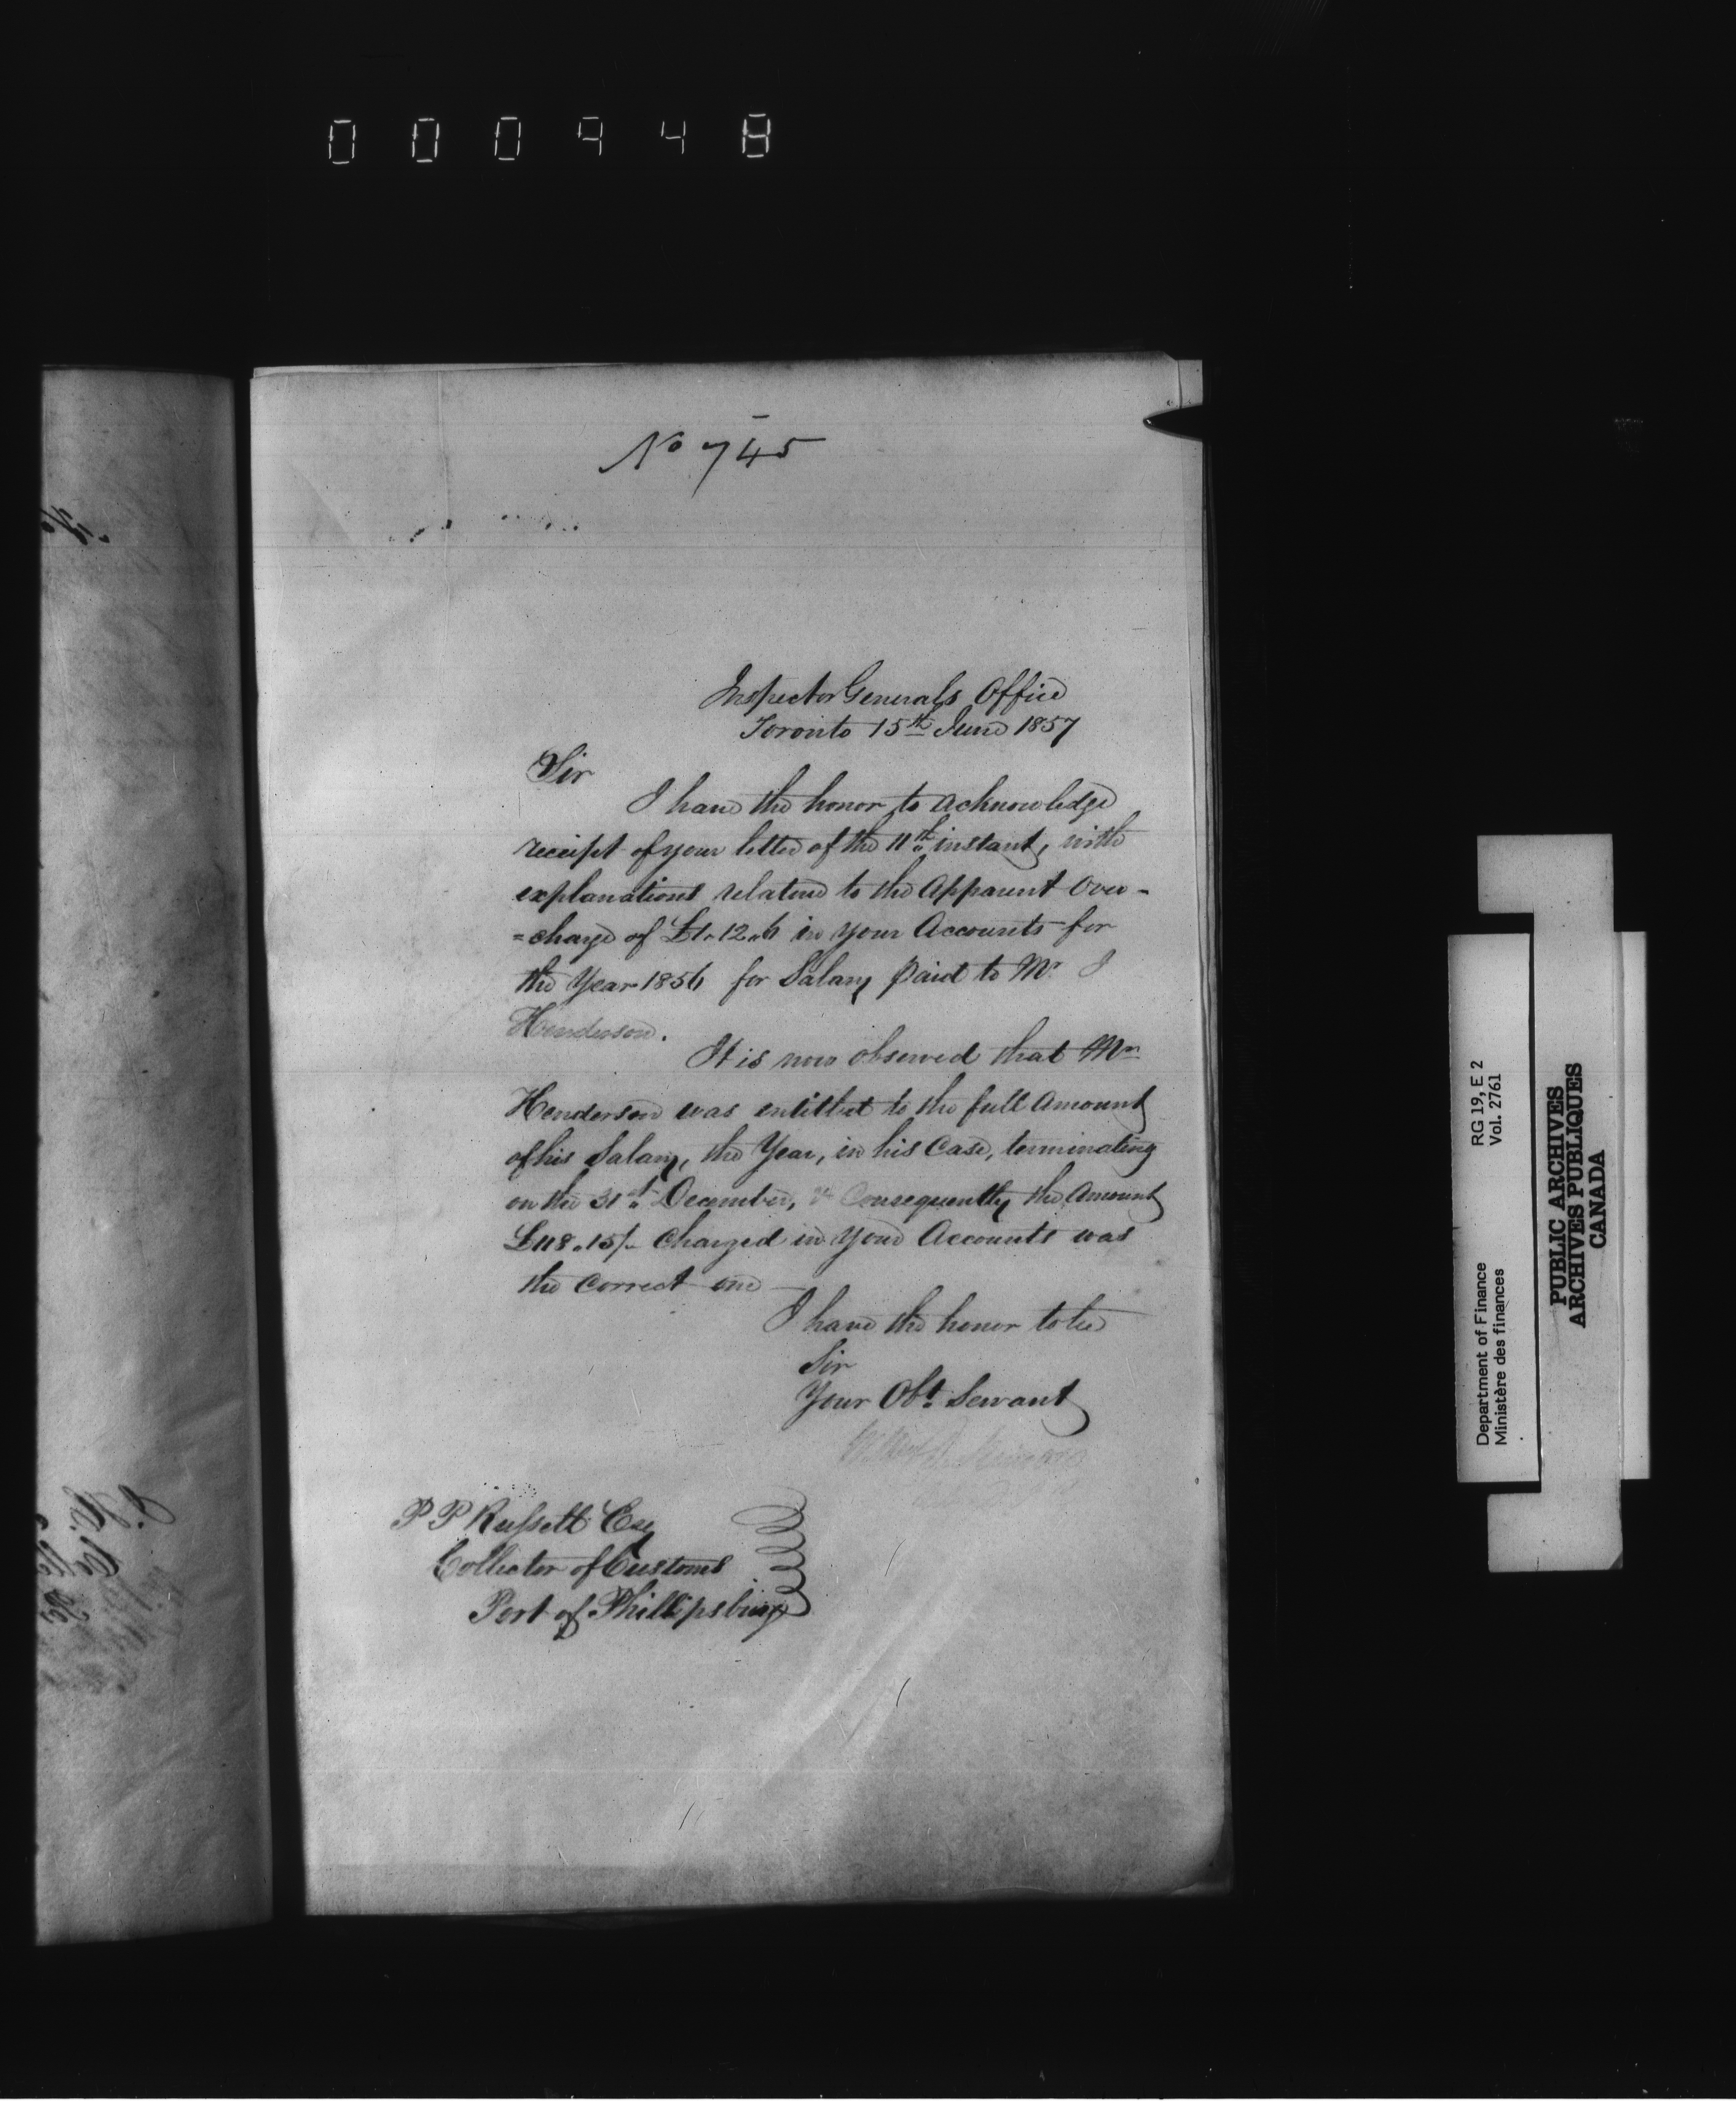 000948
No 745
Inspector Generals Office
Toronto 15th June 1857
Sir
I have the honor to acknowledge
receipt of your letter of the 11th instant, with
explanations relative to the Apparent Over-
=charge of £1.12.6 in your Accounts for
the Year 1856 for Salary paid to Mr J
Henderson.
It is now observed that Mr
Henderson was entitled to the full Amount
of his Salary, the Year, in his Case, terminating
on the 31st December, & Consequently the Amount
£118.15/- Charged in your Accounts was
the Correct one
I have the honor to be
Sir
Your Obt Servant
P P Russell Esq
Collector of Customs
Port of Phillipsburg
Department of Finance RG 19, E 2
Ministère des finances Vol. 2761
PUBLIC ARCHIVES
ARCHIVES PUBLIQUES
CANADA